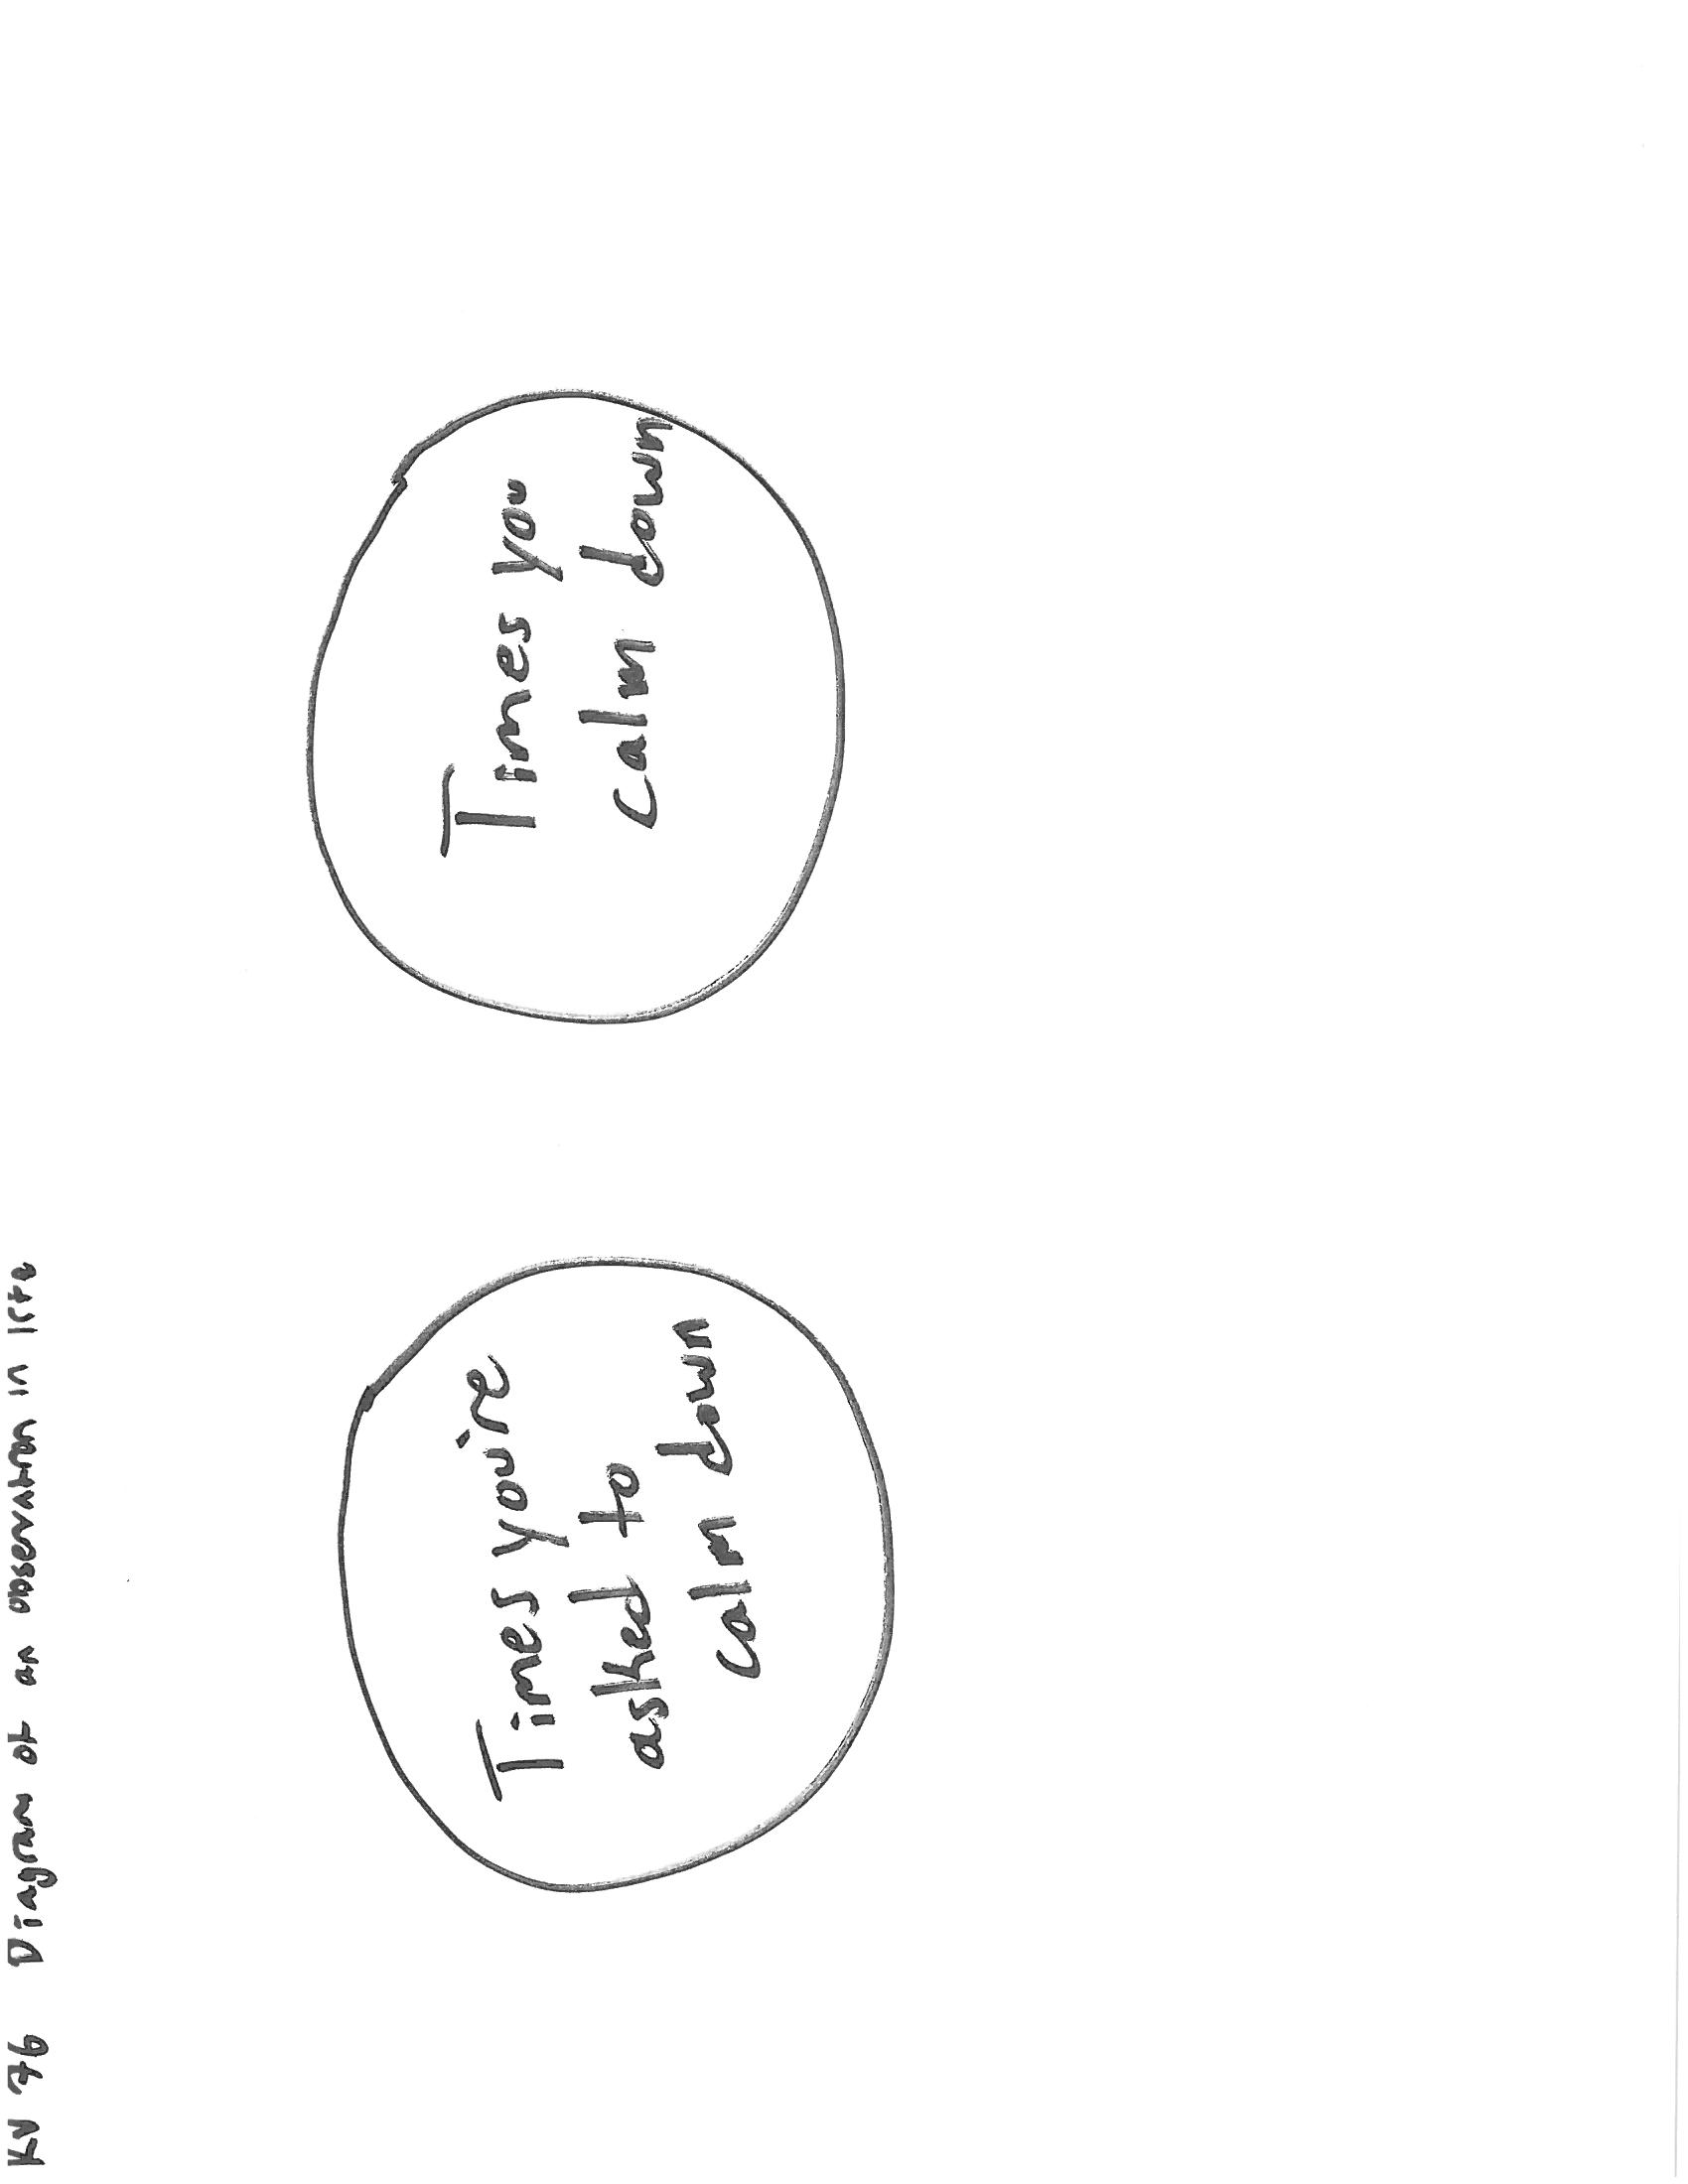 KV 76 Diagram of an observation in life
Times you're
asked to
calm down
Times you
calm down